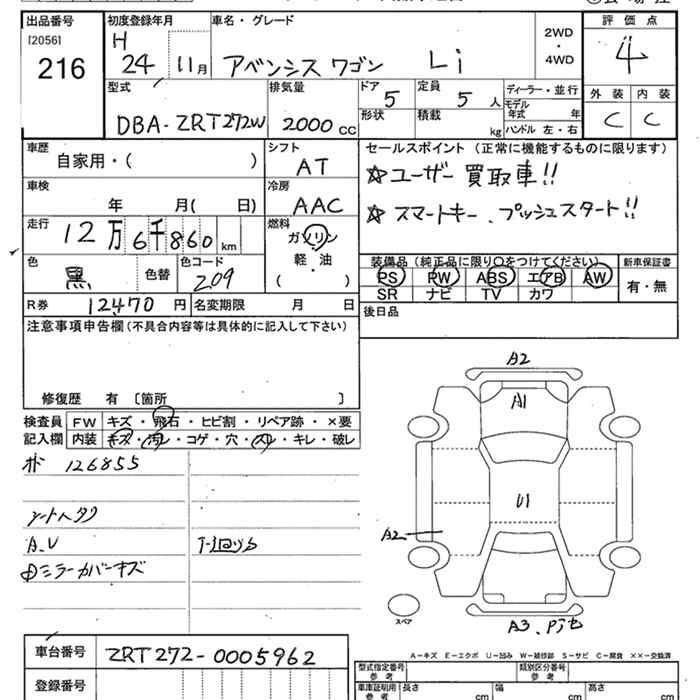 出品番号 初度登録年月 車名・グレード 評価点
[2056] H 2WD
216 24 11月 アベンシス ワゴン Li ・ 4
4WD
型式 排気量 ドア 定員 ディーラー・並行 外装 内装
5 5人 モデル
DBA-ZRT272W 2000cc 形状 積載 年式 年 C C
kg ハンドル 左・右
車歴 シフト セールスポイント (正常に機能するものに限ります)
自家用・( ) AT ☆ユーザー買取車!!
車検 冷房
年 月( 日) AAC ☆スマートキー、プッシュスタート!!
走行 12万6千860km 燃料
ガソリン
色 色コード 軽・油 装備品 (純正品に限り○をつけてください) 新車保証書
黒 色替 209 ( ) PS PW ABS エアB AW 有・無
SR ナビ TV カワ
R券 12470円 名変期限 月 日 後日品
注意事項申告欄(不具合内容等は具体的に記入して下さい)
修復歴 有 〔箇所 〕
検査員 FW キズ・飛石・ヒビ割・リペア跡・×要
記入欄 内装 キズ・汚レ・コゲ・穴・スレ・キレ・破レ
ホド 126855
シートヘタク
A.U
ミラーカバーキズ
A2
A1
U1
A2
スペア
A3.
A-キズ E-エクボ U-凹み W-補修跡 S-サビ C-腐食 ××-交換済
車台番号 ZRT272-0005962
登録番号
型式指定番号 参考 類別区分番号 参考
車庫証明用 参考 長さ cm 幅 cm 高さ cm